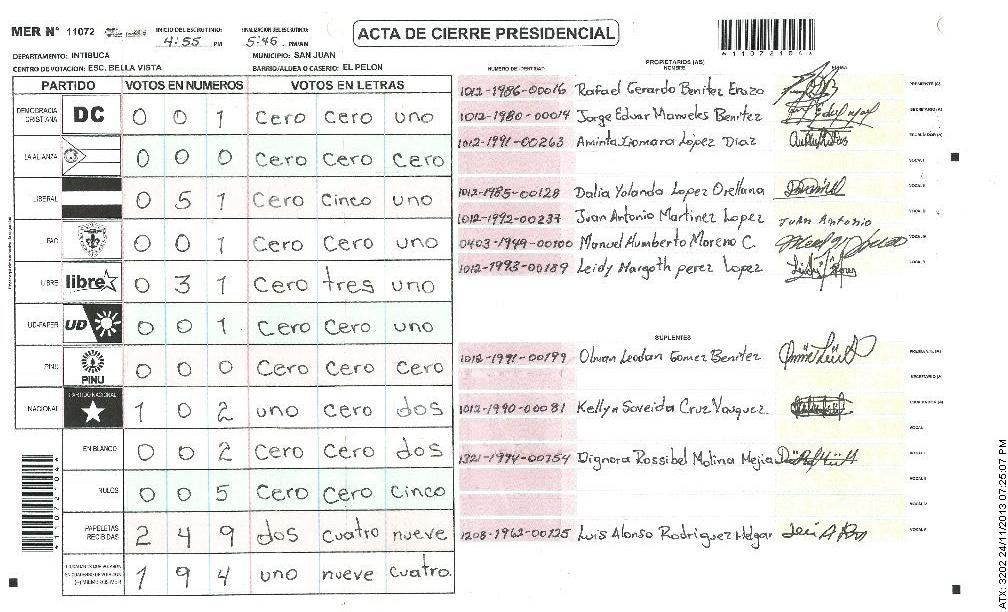 MER Nº 11072
INICIO DEL ESCRUTINIO:
4:55 PM
FINALIZACION DEL ESCRUTINIO:
5:46 PM/AM
ACTA DE CIERRE PRESIDENCIAL
DEPARTAMENTO: INTIBUCA
MUNICIPIO: SAN JUAN
CENTRO DE VOTACION: ESC. BELLA VISTA
BARRIO/ALDEA O CASERIO: EL PELON
PARTIDO VOTOS EN NUMEROS VOTOS EN LETRAS
DEMOCRACIA CRISTIANA DC 0 0 1 Cero Cero uno
LA ALIANZA 0 0 0 Cero Cero Cero
LIBERAL 0 5 1 Cero Cinco uno
PAC 0 0 1 Cero Cero uno
LIBRE libre 0 3 1 Cero tres uno
UD-FAPER UD 0 0 1 Cero Cero uno
PINU PINU 0 0 0 Cero Cero Cero
NACIONAL PARTIDO NACIONAL 1 0 2 uno Cero dos
EN BLANCO 0 0 2 Cero Cero dos
NULOS 0 0 5 Cero Cero Cinco
PAPELETAS RECIBIDAS 2 4 9 dos cuatro nueve
1 9 4 uno nueve cuatro.
NUMERO DE IDENTIDAD PROPIETARIOS (AS) NOMBRE FIRMA
1012-1986-00016 Rafael Gerardo Benitez Erazo PRESIDENTE (A)
1012-1980-00014 Jorge Edvar Manueles Benitez SECRETARIO (A)
1012-1991-00263 Aminta Xiomara López Diaz ESCRUTADOR (A)
VOCAL I
1012-1985-00128 Dalia Yolanda Lopez Orellana VOCAL II
1012-1992-00237 Juan Antonio Martinez Lopez Juan Antonio VOCAL III
0403-1949-00100 Manuel Humberto Moreno C. VOCAL IV
1012-1993-00189 Leidy Margoth perez Lopez VOCAL V
SUPLENTES
1018-1991-00199 Olvan Leodan Gomez Benitez PRESIDENTE (A)
SECRETARIO (A)
1012-1990-00081 Kellyn Saveida Cruz Vasquez ESCRUTADOR (A)
VOCAL I
1321-1994-00154 Dignora Rossibel Molina Mejia
1208-1962-00125 Luis Alonso Rodriguez Melgar VOCAL V
ATX: 3202 24/11/2013 07:25:07 PM